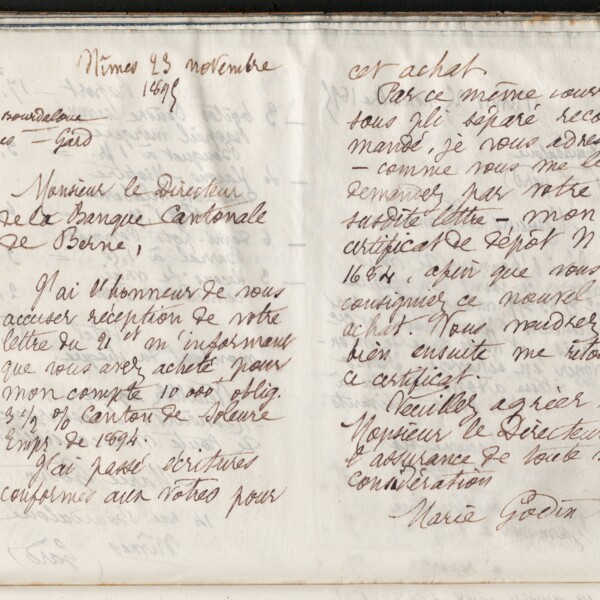 Nîmes 23 novembre
1895
Bourdaloue
es = Gard
Monsieur le Directeur
de la Banque Cantonale
de Berne,
J'ai l'honneur de vous
accuser réception de votre
lettre du 21 et m'informant
que vous avez acheté pour
mon compte 10 000 oblig.
3 1/2 % Canton de Soleure
Empr. de 1894.
J'ai passé écritures
conformes aux vôtres pour
cet achat.
Par ce même cour
sous pli séparé reco
mandé, je vous adres
- comme vous me le
demandez par votre
susdite lettre - mon
certificat de dépôt N
1684, afin que vous
consigniez ce nouvel
achat. Vous voudrez
bien ensuite me reto
ce certificat.
Veuillez agréer
Monsieur le Directeur
l'assurance de toute
considération
Marie Godin